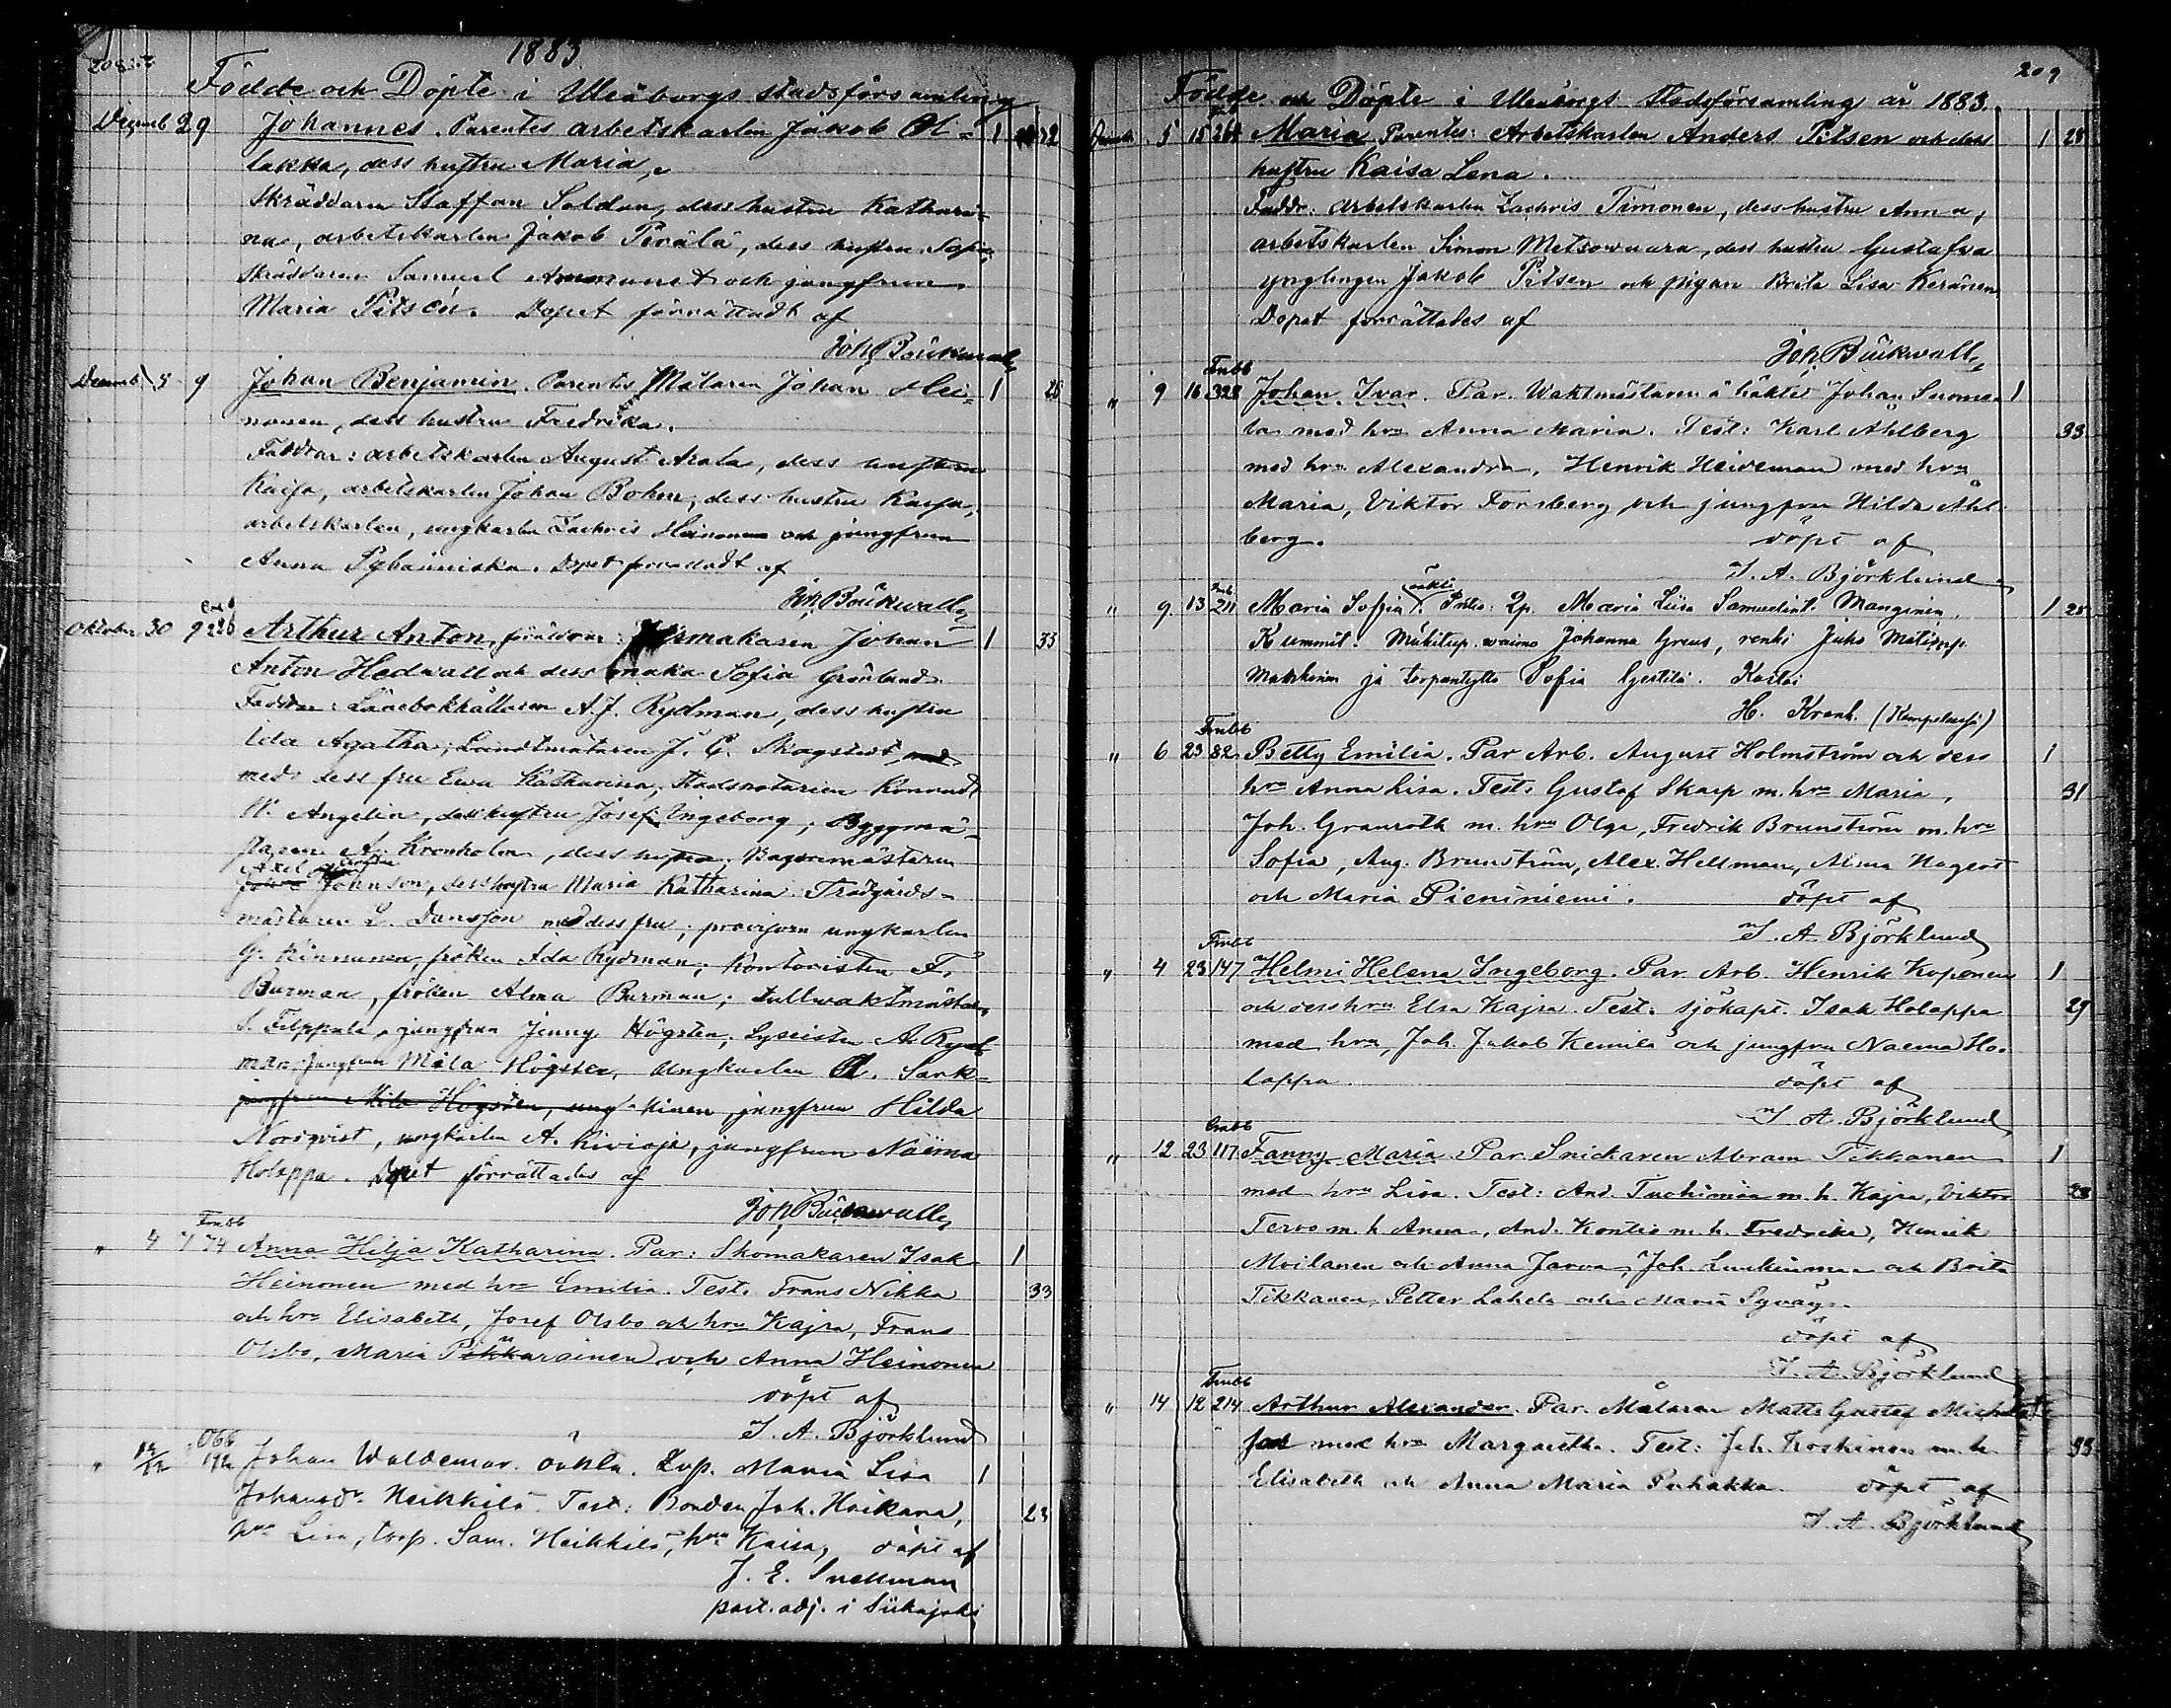 208
1883.
Födde och Döpte i Uleåborgs stadsförsamling
Decemb 29 Johannes. Parentes arbetskarlen Jakob Al- 1 32
lakka, dess hustru Maria,
Skräddaren Staffan Soldan, dess hustru Kathari-
na, arbetskarlen Jakob Perälä, dess hustru Sofia,
Skräddaren Samuel och jungfrun
Maria Pitsén. Dopet förrättadt af
Joh. Bäckwall
Decemb 5 9 Johan Benjamin. Parentes Målaren Johan Hei- 1 26
nonen, dess hustru Fredrika.
Faddrar: arbetskarlen August Arala, dess hustru
Kaisa, arbetskarlen Johan Bohm, dess hustru Kaisa,
arbetskarlen, ungkarlen Zachris Heinonen och jungfrun
Anna Dopet förrättadt af
Joh. Bäckwall
Oktober 30 9 226 Arthur Anton, föräldrar: Urmakaren Johan 1 33
Anton Hedwall och dess maka Sofia Grönlund.
Faddrar: Lånebokhållaren A. J. Rydman, dess hustru
Ida Agatha; Landtmätaren J. G. Skogstedt
med dess fru Ewa Katharina, Stadsnotarien Konradt
W. Angelin, dess hustru Josef. Ingeborg; Byggmä-
staren A. Kronholm, dess hustru, Bagaremästaren
Axel
Johnson, dess hustru Maria Katharina. Trädgårds-
mästaren L. Dansson med dess fru; provisorn ungkarlen
G. Kinnunen, fröken Ida Rydman; Kontoristen F.
Burman, fröken Alma Burman; tullwaktmästaren
S. Filppula, jungfrun Jenny Högsten; Lyceisten A. Ryd-
man, Jungfrun Mila Högsten, Ungkarlen A. Sark-
jungfrun Mila Högsten, ung- kinen, jungfrun Hilda
Norqvist, ungkarlen A. Kivioja, jungfrun Naëma
Holappa. Dopet förrättades af
Joh. Bäckwall
Frubb
" 4 7 74 Anna Hilja Katharina. Par: Skomakaren Isak 1
Heinonen med hru Emilia. Test. Frans Nikka 33
och hru Elisabeth, Josef Olsbo och hru Kajsa, Frans
Olsbo, Maria Pikkarainen och Anna Heinonen
döpt af
J. A. Björklund
" 192 Johan Waldemar. oäkta. Maria Lisa 1
Johansdr Heikkilä. Test: Bonden Joh. Hoikara, 23
hru Lisa, torp. Sam. Heikkilä, hru Kaisa, döpt af
J. E. Snellman
past. adj. i Siikajoki
209
Födde och Döpte i Uleåborgs Stadsförsamling år 1883.
5 15 268 Maria Parentes: Arbetskarlen Anders Pitsen och dess 1 28
hustru Kaisa Lena.
Faddr: arbetskarlen Zachris Timonen, dess hustru Anna,
arbetskarlen Simon Metsowaara, dess hustru Gustafva
ynglingen Jakob Pitsen och pigan Brita Lisa Keränen
Dopet förrättades af
Joh. Bäckwall
Frubb
" 9 16 328 Johan Ivar. Par. Waktmästaren å häktet Johan Suomea- 1
la med hru Anna Maria. Test: Karl Ahlberg 33
med hru Alexandra, Henrik Heideman med hru
Maria, Viktor Forsberg och jungfru Hilda Ahl-
berg. döpt af
J. A. Björklund
" 9 13 211 Maria Sofia oäkta. Maria Liisa Samuelint. Manginen 1 25
Kummit: Mäkitup. vaimo Johanna Greus, renki Juho Matinp.
ja torpantyttö Sofia Kastoi
H. Krank. (Kempeleessä)
Frubb
" 6 23 82 Betty Emilia. Par Arb. August Holmström och dess 1
hru Anna Lisa. Test: Gustaf Skarp m. hru Maria, 31
Joh. Granroth m. hru Olga, Fredrik Brunström m. hru
Sofia, Aug. Brunström, Alex. Hellman, Alma
och Maria Pieniniemi. döpt af
J. A. Björklund
Frubb
" 4 23 147 Helmi Helena Ingeborg. Par Arb. Henrik Koponen 1
och dess hru Elsa Kajsa. Test. sjökapt. Isak Holappa 29
med hru, Joh. Jakob Kemilä och jungfru Naema Ho-
lappa. döpt af
J. A. Björklund
" 12 23 117 Fanny Maria Par. Snickaren Abram Tikkanen 1
med hru Lisa. Test: And. m. h. Kajsa, Viktor 28
Tervo m. h. Anna, And. Kontio m. h. Fredrika, Henrik
Moilanen och Anna Jarva, Joh. och Brita
Tikkanen, Petter Lahela och Maria
döpt af
J. A. Björklund
Frubb
" 14 12 214 Arthur Alexander. Par. Målaren Matts Gustaf Michels-
son med hru Margaretha. Test: Joh. Koskinen m. h. 33
Elisabeth och Anna Maria Puhakka. döpt af
J. A. Björklund